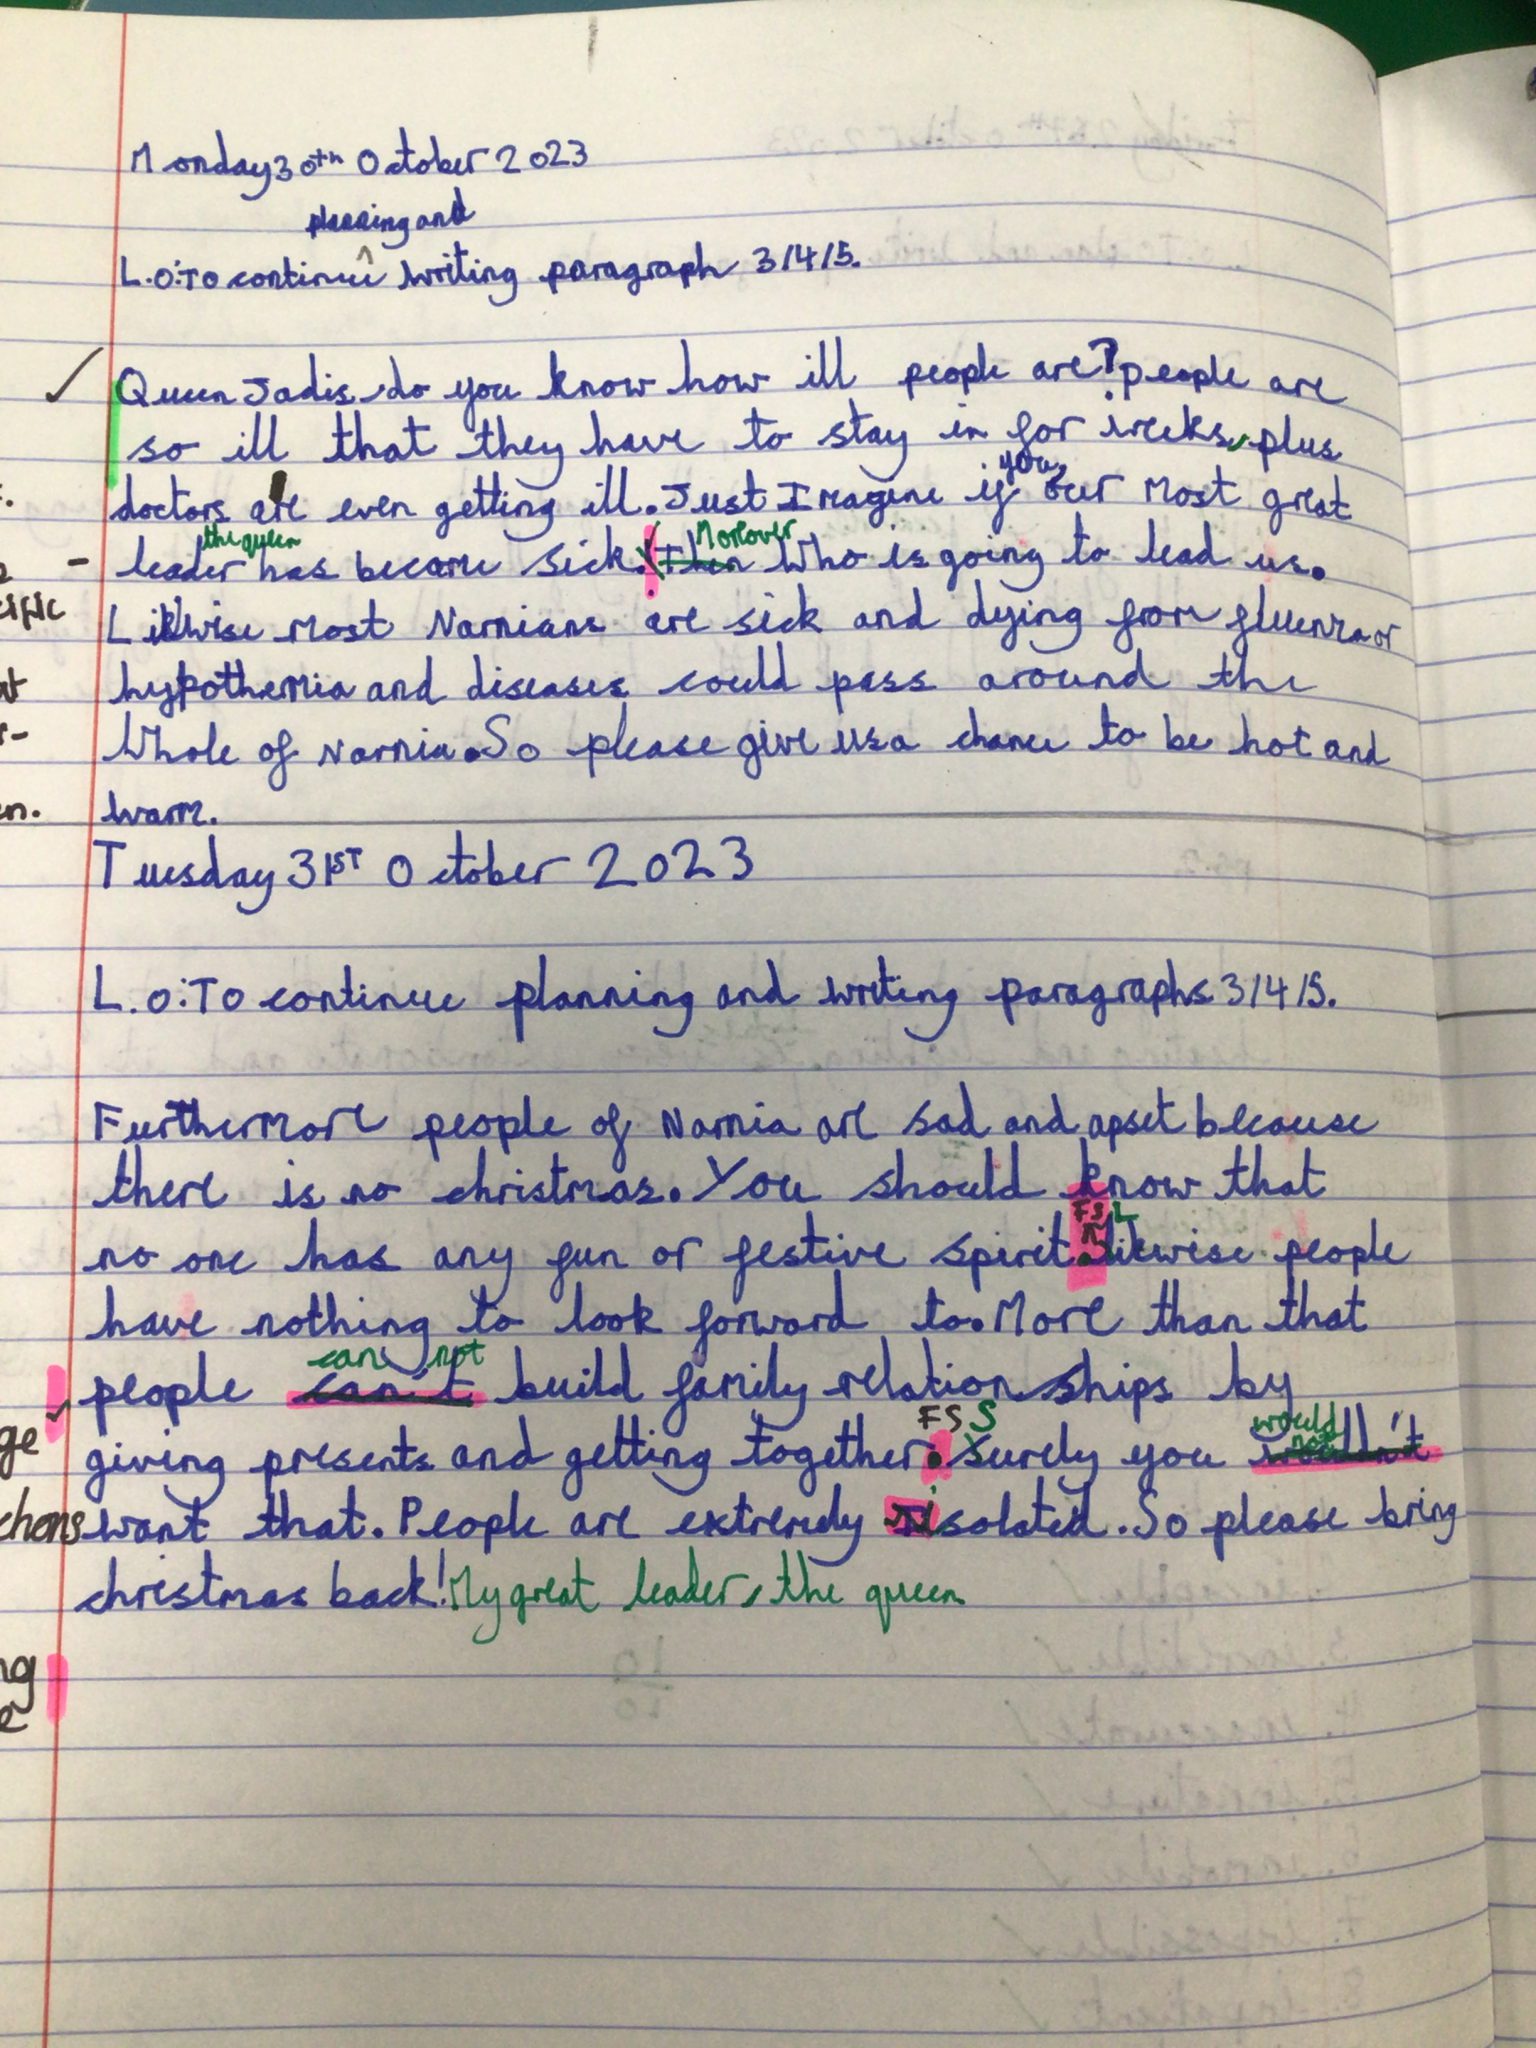 Monday 30th October 2023
planning and
L.O: To continue ^ writing paragraph 3/4/5.
Queen Jadis, do you know how ill people are? people are
so ill that they have to stay in for weeks, plus
doctors are even getting ill. Just Imagine if you, our most great
leader the queen has become sick. (then Moreover Who is going to lead us.
Likwise most Narnians are sick and dying from fluenza or
hypothermia and diseases could pass around the
Whole of Narnia. So please give us a chance to be hot and
warm.
Tuesday 31ST October 2023
L.O: To continue planning and writing paragraphs 3/4/5.
Furthermore people of Narnia are sad and apset because
there is no christmas. You should know that
FS L
no one has any fun or festive spirit. likewise people
have nothing to look forward to. More than that
can not
people can't build family relationships by
FS S would not
giving presents and getting together. Surely you wouldn't
want that. People are extremely isolated. So please bring
christmas back! My great leader, the queen
cific
en.
ge
chons
ng
e